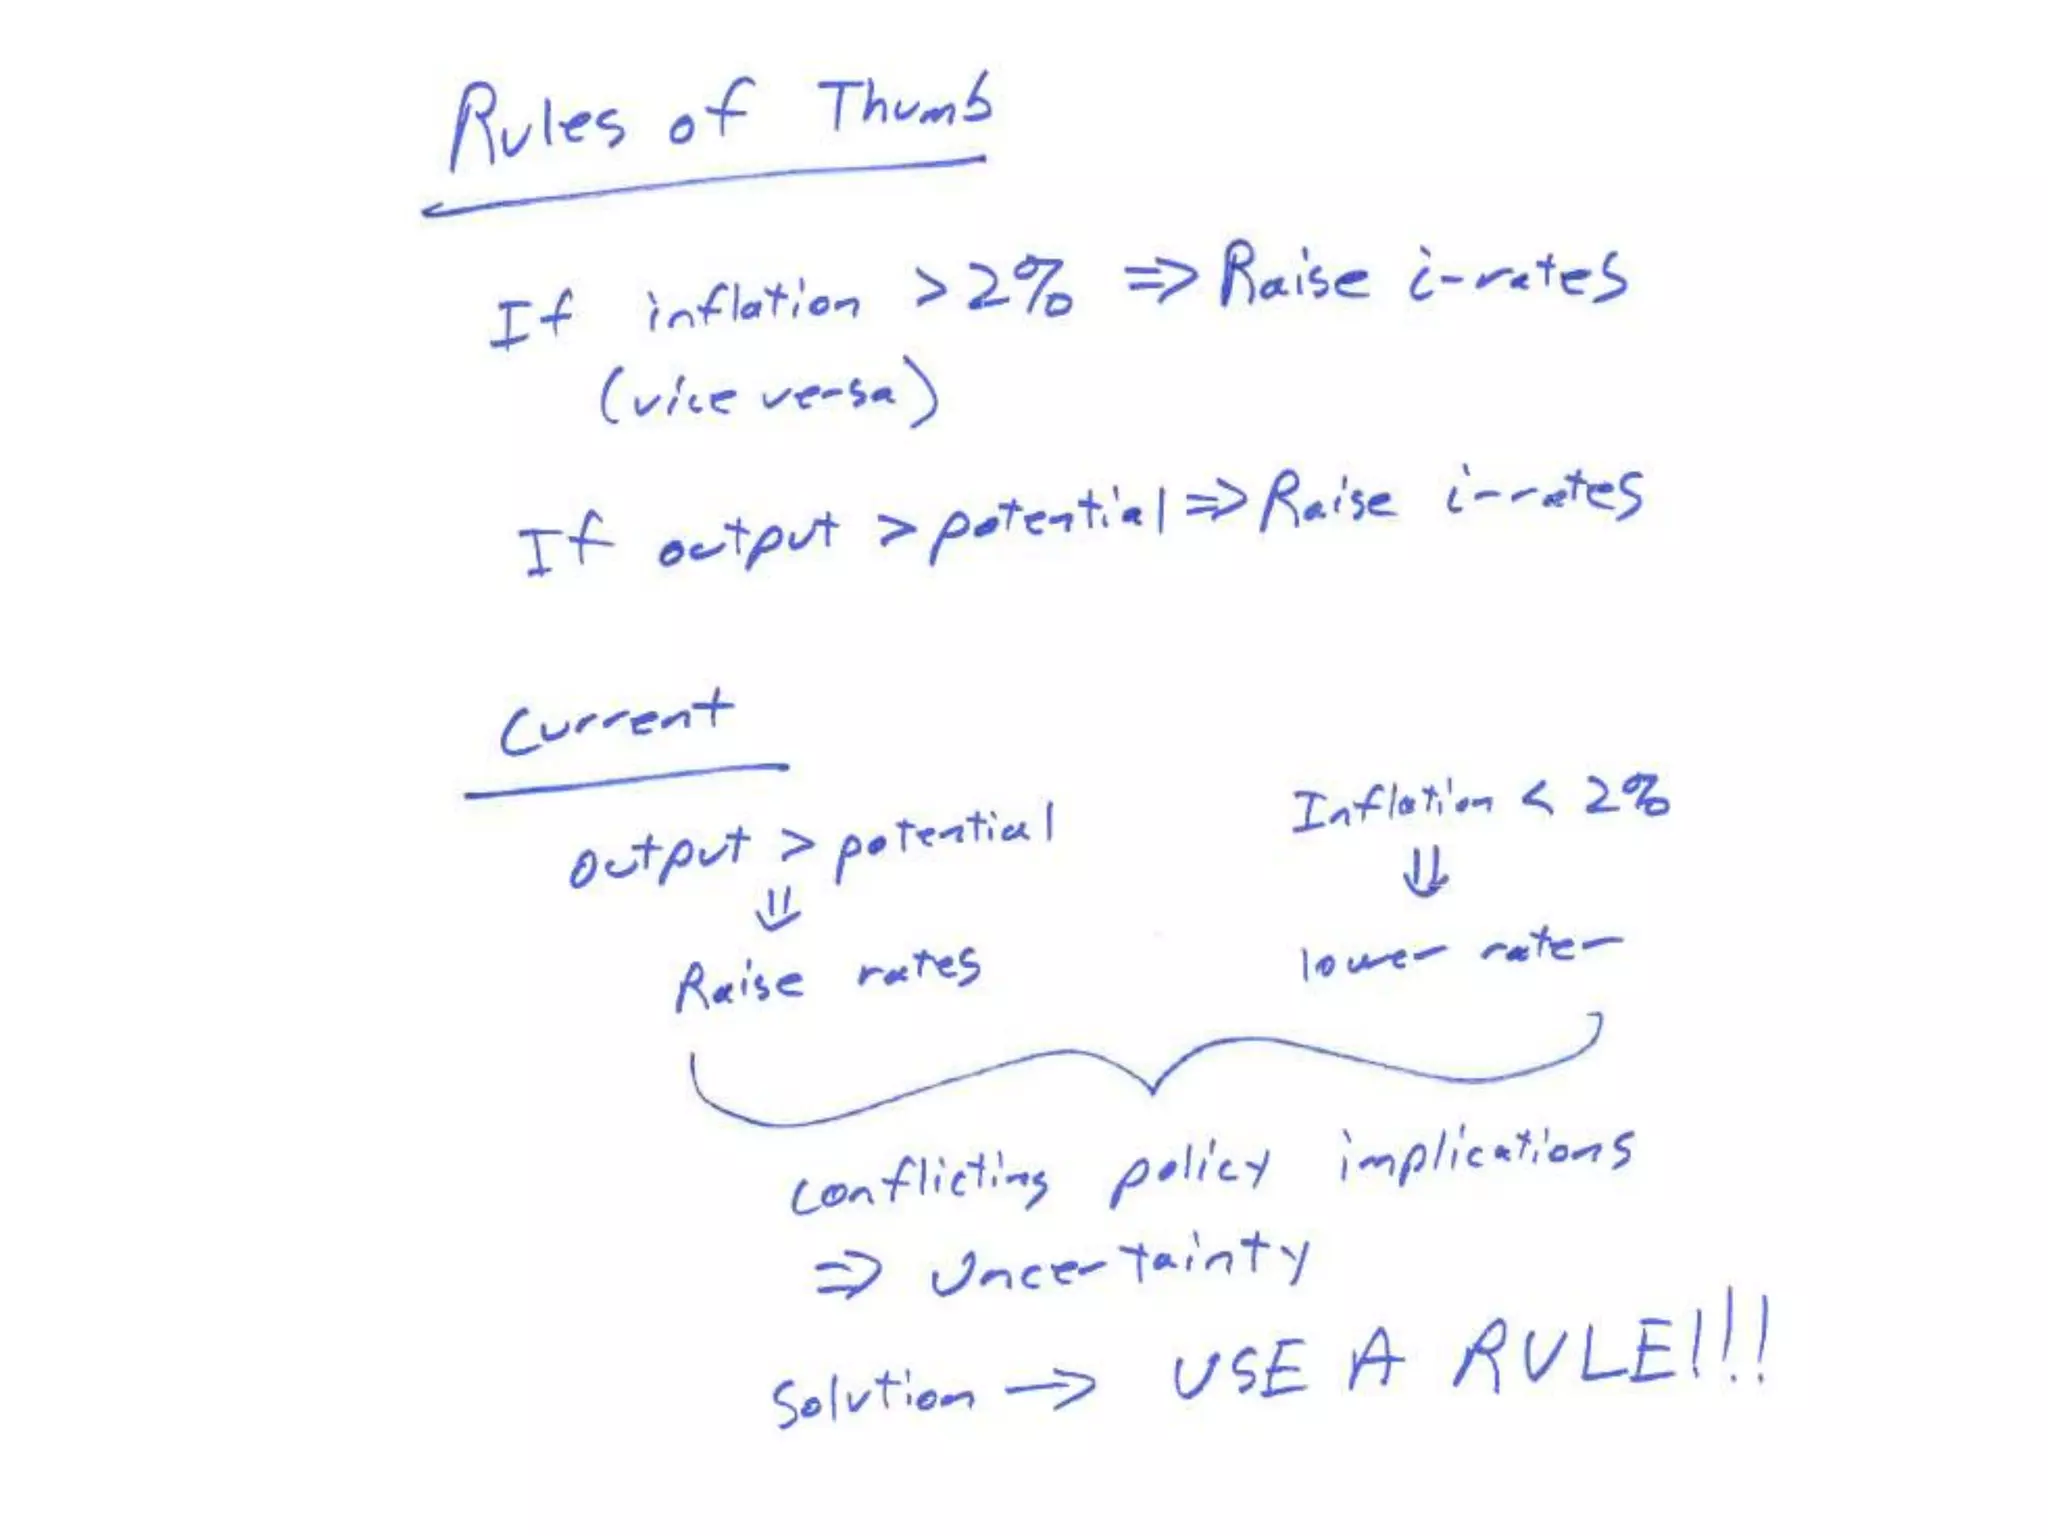 Rules of Thumb
If inflation > 2% ⇒ Raise i-rates
(vice versa)
If output > potential ⇒ Raise i-rates
Current
output > potential
Inflation < 2%
⇓
⇓
Raise rates
lower rates
conflicting policy implications
⇒ Uncertainty
Solution → USE A RULE!!!